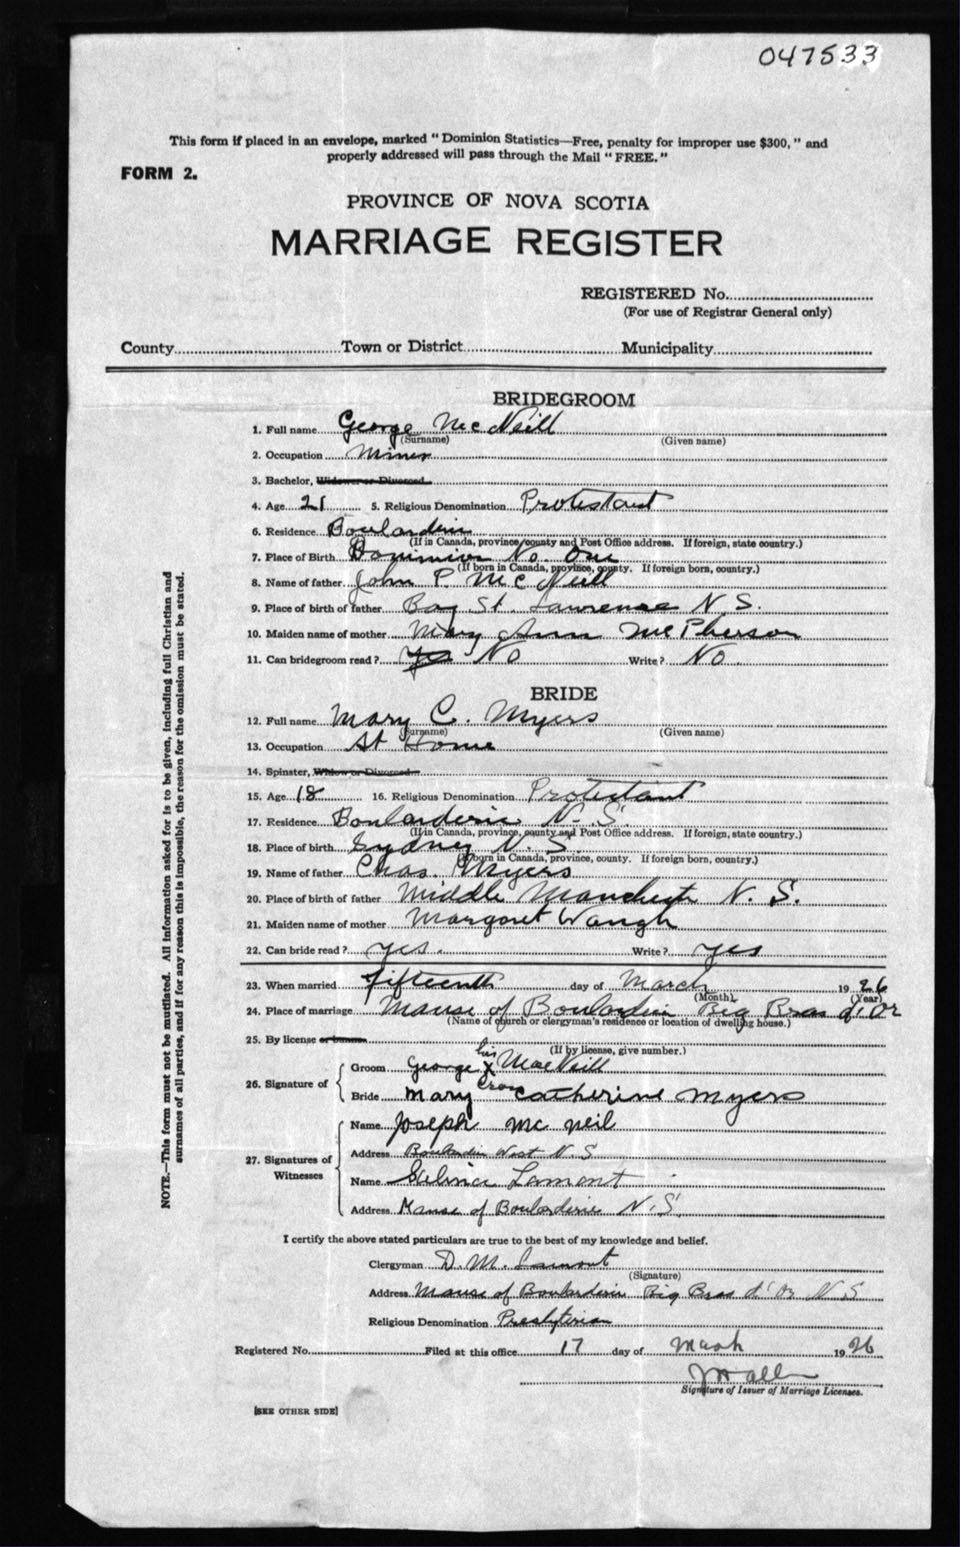 047533
This form if placed in an envelope, marked " Dominion Statistics—Free, penalty for improper use $300, " and
properly addressed will pass through the Mail " FREE. "
FORM 2.
PROVINCE OF NOVA SCOTIA
MARRIAGE REGISTER
REGISTERED No.
(For use of Registrar General only)
County Town or District Municipality
BRIDEGROOM
1. Full name George McNeill
(Surname) (Given name)
2. Occupation Miner
3. Bachelor, Widower or Divorced
4. Age 21 5. Religious Denomination Protestant
6. Residence Boularderie
(If in Canada, province/county and Post Office address. If foreign, state country.)
7. Place of Birth Dominion No. One
(If born in Canada, province, county. If foreign born, country.)
8. Name of father John P. McNeill
9. Place of birth of father Bay St. Lawrence N.S.
10. Maiden name of mother Mary Ann McPherson
11. Can bridegroom read? Yes No Write? No.
BRIDE
12. Full name Mary C. Myers
(Surname) (Given name)
13. Occupation At Home
14. Spinster, Widow or Divorced
15. Age 18 16. Religious Denomination Protestant
17. Residence Boularderie N. S.
(If in Canada, province, county and Post Office address. If foreign, state country.)
18. Place of birth Sydney N. S.
(If born in Canada, province, county. If foreign born, country.)
19. Name of father Chas. Myers
20. Place of birth of father Middle Manchester N. S.
21. Maiden name of mother Margaret Waugh
22. Can bride read? yes. Write? yes
23. When married fifteenth day of March 1926
(Month) (Year)
24. Place of marriage Manse of Boularderie Big Bras d'Or
(Name of church or clergyman's residence or location of dwelling house.)
25. By license or banns
(If by license, give number.)
his
26. Signature of Groom George X MacNeill
cross
Bride Mary Catherine Myers
27. Signatures of Witnesses
Name Joseph McNeil
Address Boularderie West N S
Name Lamont
Address Manse of Boularderie N.S.
I certify the above stated particulars are true to the best of my knowledge and belief.
Clergyman D. M. Lamont
(Signature)
Address Manse of Boularderie Big Bras d'Or N S
Religious Denomination Presbyterian
Registered No. Filed at this office 17 day of March 1926
Signature of Issuer of Marriage Licenses.
[SEE OTHER SIDE]
NOTE.—This form must not be mutilated. All information asked for is to be given, including full Christian and
surnames of all parties, and if for any reason this is impossible, the reason for the omission must be stated.